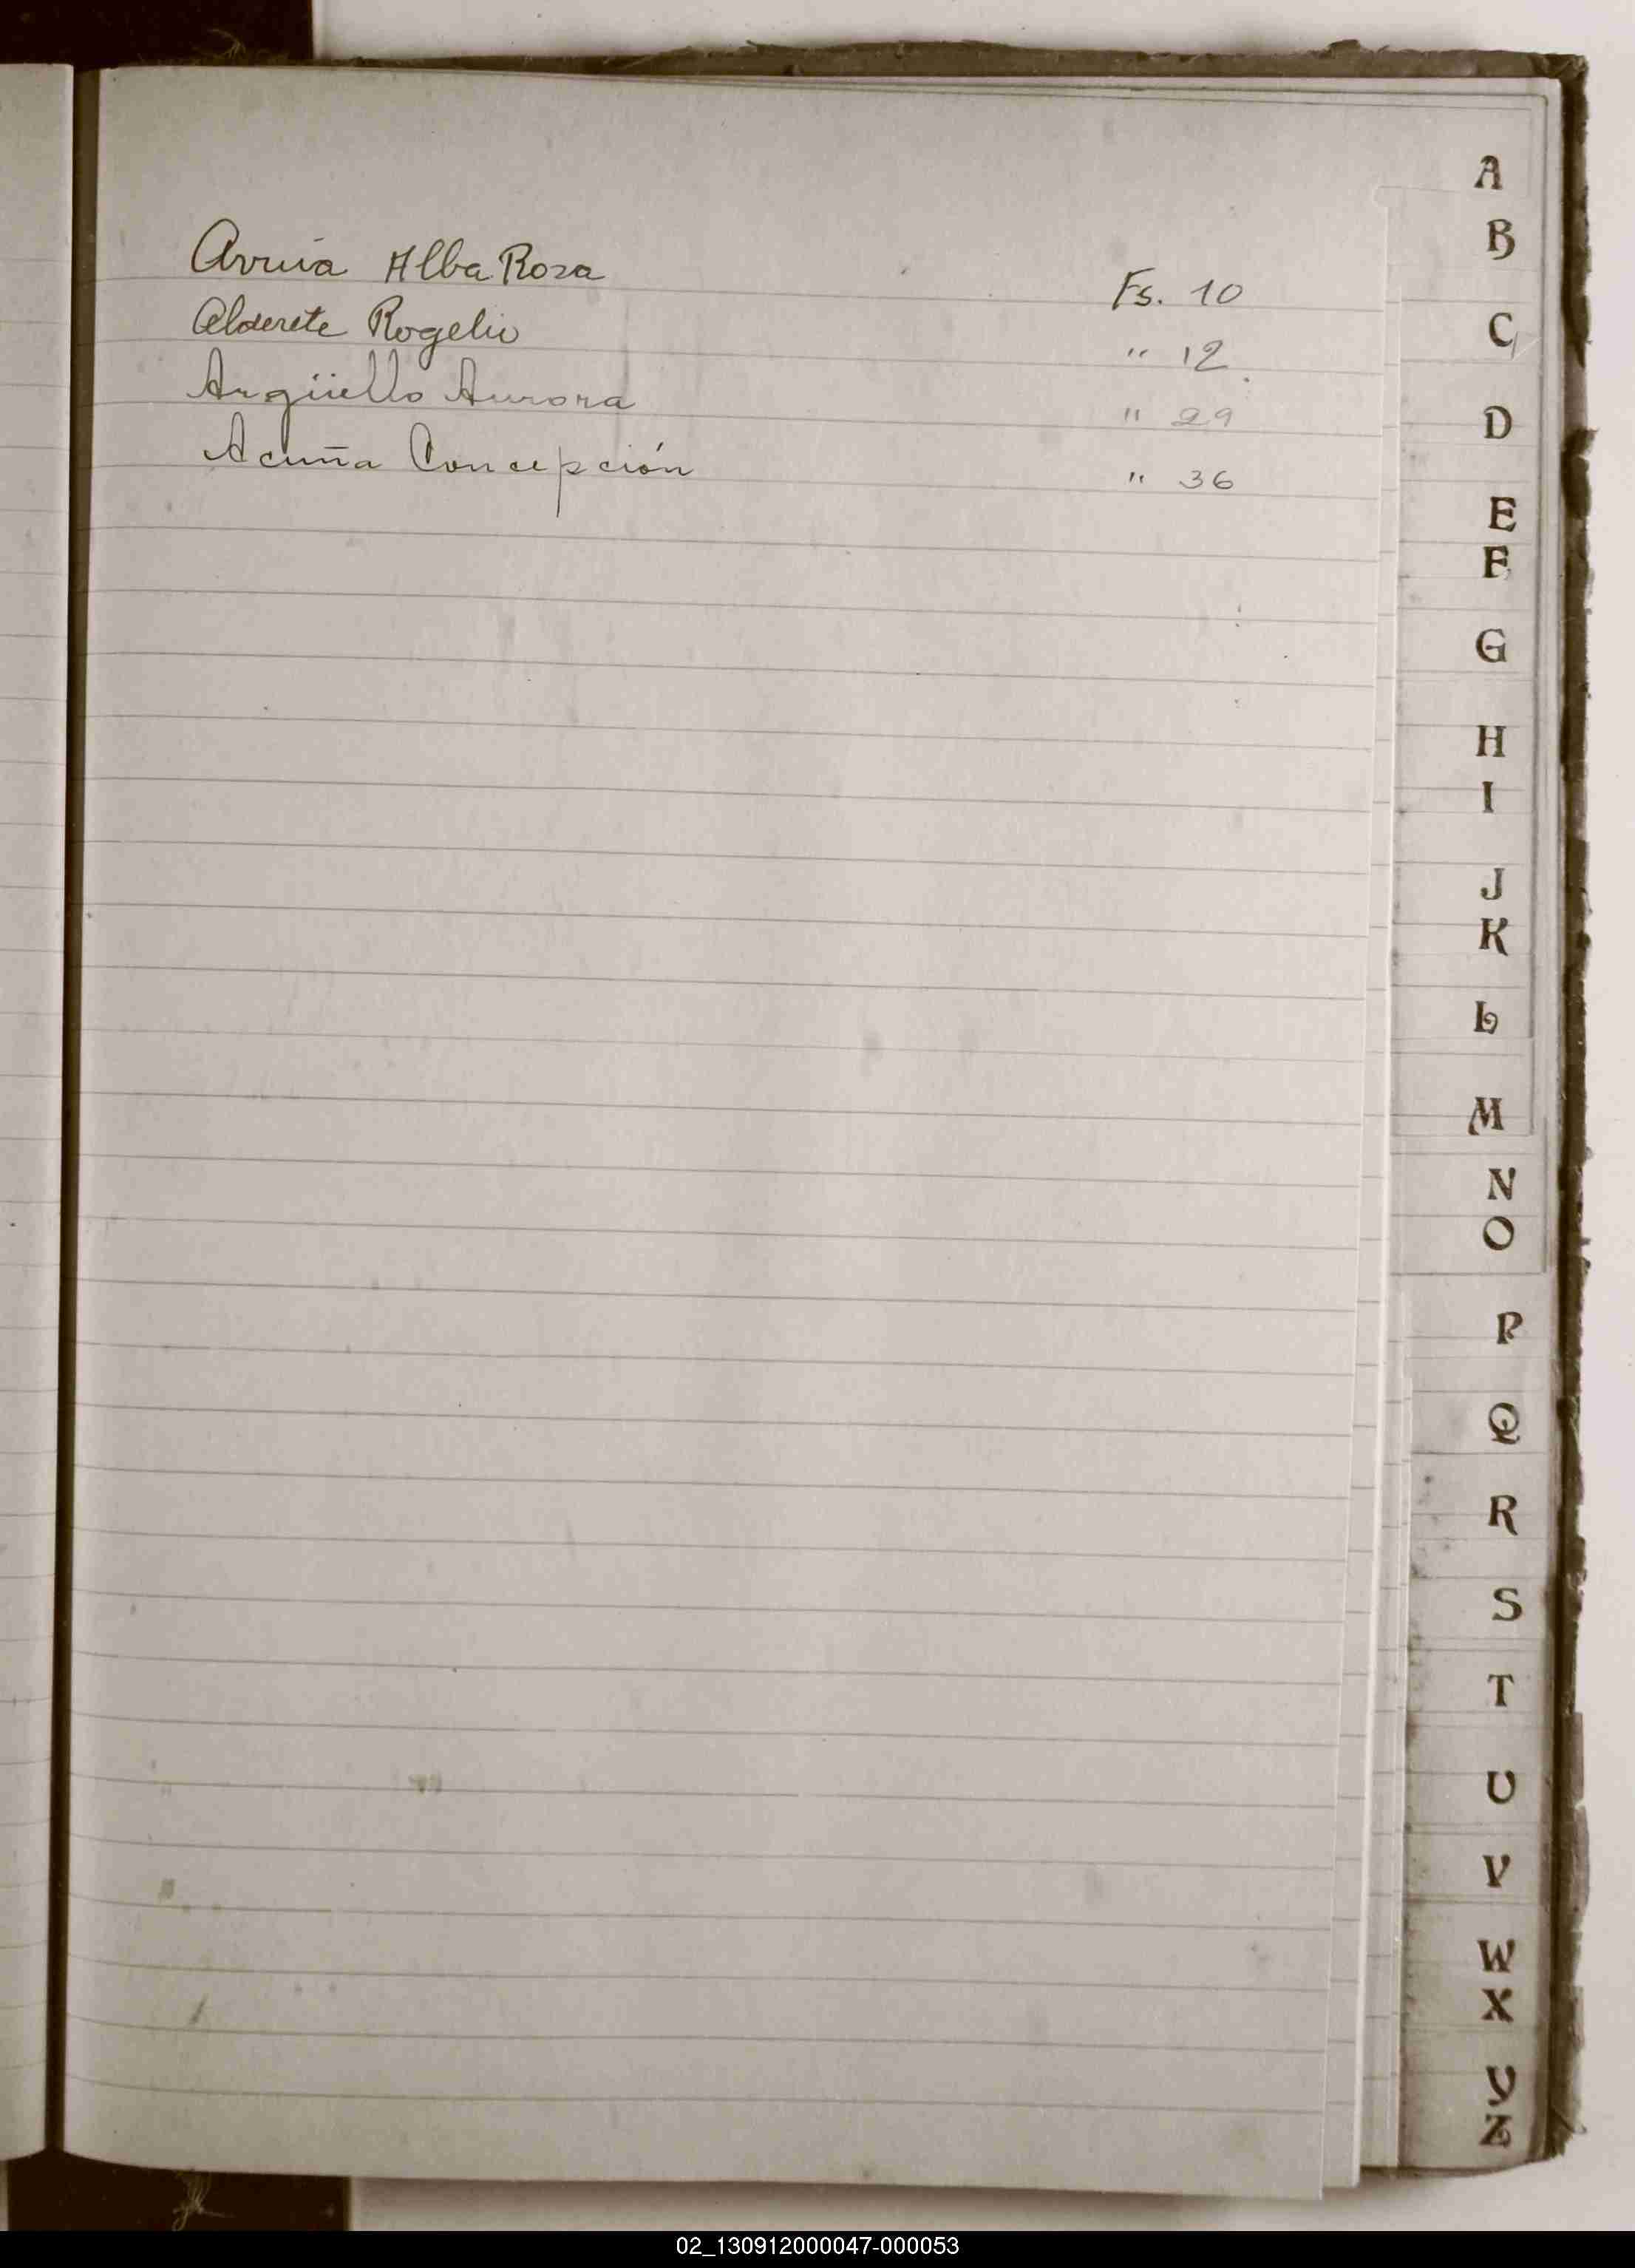 Arrúa Alba Rosa Fs. 10
Alderete Rogelio " 12
Argüello Aurora " 29
Acuña Concepción " 36
A
B
C
D
E
F
G
H
I
J
K
L
M
N
O
P
Q
R
S
T
U
V
W
X
Y
Z
02_130912000047-000053